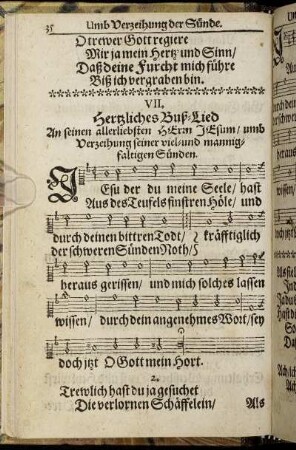 35 Umb Verzeihung der Sünde.
O trewer Gott regiere
Mir ja mein Hertz und Sinn/
Daß deine Furcht mich führe
Biß ich vergraben bin.
VII.
Hertzliches Buß-Lied
An seinen allerliebsten HErzn JEsum/ umb
Verzeihung seiner viel-und mannig-
faltigen Sünden.
JEsu der du meine Seele/ hast
Aus des Teufels finstren Höle/ und
durch deinen bittren Todt/ kräfftiglich
der schweren Sünden Noth/
heraus gerissen/ und mich solches lassen
wissen/ durch dein angenehmes Wort/ sey
doch jtzt O Gott mein Hort.
2.
Trewlich hast du ja gesuchet
Die verlornen Schäffelein/
Als